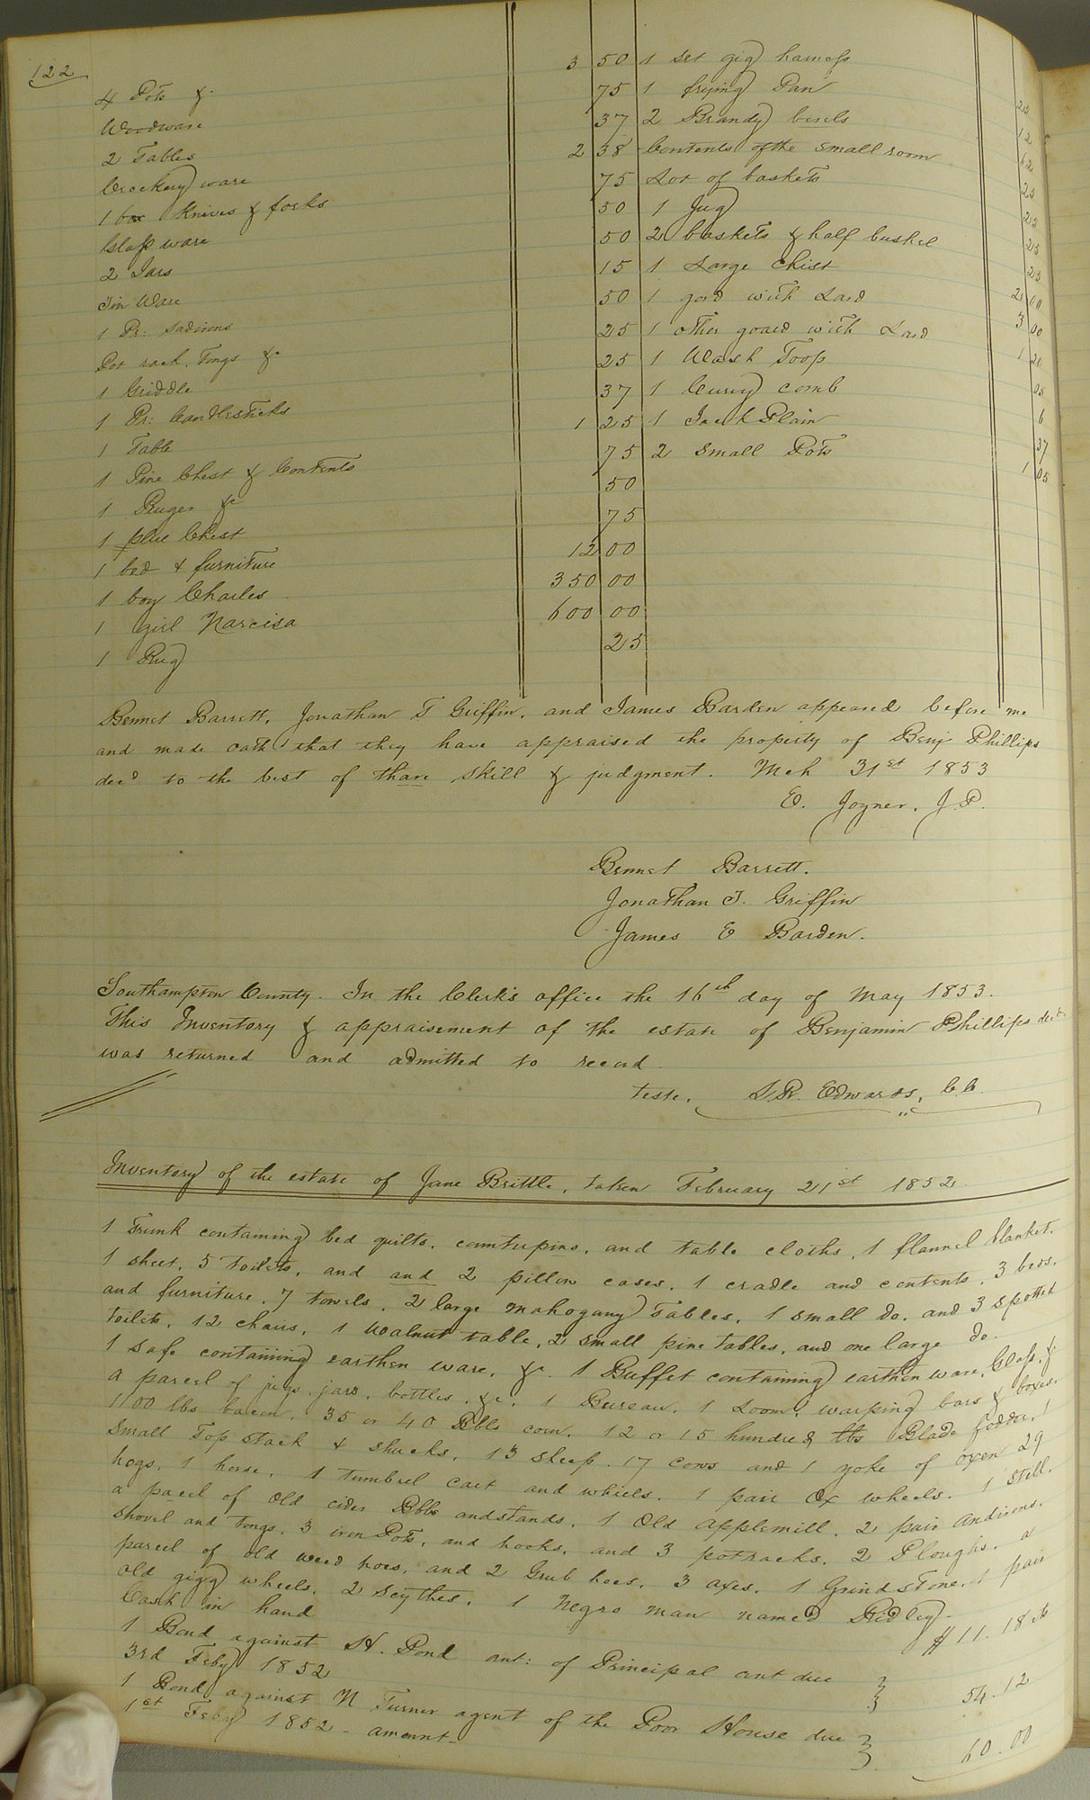 122
4 Pots &c 3 50
Woodware 75
2 Tables 37
Crockery ware 2 38
1 box Knives & forks 75
Glass ware 50
2 Jars 50
Tin Ware 15
1 Pr: Sadirons 50
Pot rack, Tongs &c 25
1 Griddle 25
1 Pr: Candlesticks 37
1 Table 1 25
1 Pine Chest & Contents 75
1 Ruger &c 50
1 plue Chest 75
1 bed & furniture 12 00
1 boy Charles 350 00
1 girl Narcisa 600 00
1 Rug 25
1 set gig harness
1 frying Pan 25
2 Brandy bbls 12
Contents of the small room 62
Lot of baskets 25
1 Jug 25
2 baskets & half bushel 25
1 Large Chist 25
1 gord with Lard 2 00
1 other goard with Lard 3 00
1 Wash Toop 1 20
1 Curry comb 05
1 Jack Plain 6
2 Small Pots 37
1 05
Bennet Barrett, Jonathan T Griffin, and James Barden appeared before me
and made oath that they have appraised the property of Benj Phillips
decd to the best of thare skill & judgment. Mch 31st 1853
E. Joyner, J.P.
Bennet Barrett.
Jonathan T. Griffin
James E Barden.
Southampton County. In the Clerk's office the 16th day of May 1853.
This Inventory & appraisement of the estate of Benjamin Phillips decd
was returned and admitted to record.
teste, L.R. Edwards, C.C.
Inventory of the estate of Jane Brittle, taken February 21st 1852
1 Trunk containing bed quilts, countupins, and table cloths, 1 flannel blanket.
1 sheet, 5 toilets, and and 2 pillow cases, 1 cradle and contents, 3 beds,
and furniture, 7 towels, 2 large mahogany Tables, 1 small do. and 3 spotted
toilets, 12 chairs, 1 Walnut table, 2 small pine tables, and one large do.
1 safe containing earthen ware, &c. 1 Buffet containing earthen ware, Glass, &
a parcel of jugs, jars, bottles, &c, 1 Bureau, 1 Loom, warping bars & boxes,
1100 lbs bacon, 35 or 40 Bbls corn, 12 or 15 hundred lbs Blade fodder, 1
small Top stack & shucks, 13 sheep, 17 cows and 1 yoke of oxen 29
hogs, 1 horse, 1 tumbrel cart and wheels. 1 pair Ox wheels. 1 still.
a parcel of old cider Bbls and stands, 1 Old Applemill, 2 pair Andirons,
shovel and tongs, 3 iron Pots, and hooks, and 3 potracks, 2 Ploughs, a
parcel of old weed hoes, and 2 Grub hoes, 3 axes, 1 Grindstone, 1 pair
old gigg wheels, 2 Scythes, 1 Negro man named Ridley -
Cash in hand $11.18 cts
1 Bond against H. Pond amt: of Principal amt due
3rd Feby 1852 54.12
1 Bond against N Turner agent of the Poor House due
1st Feby 1852 - amount - 60.00